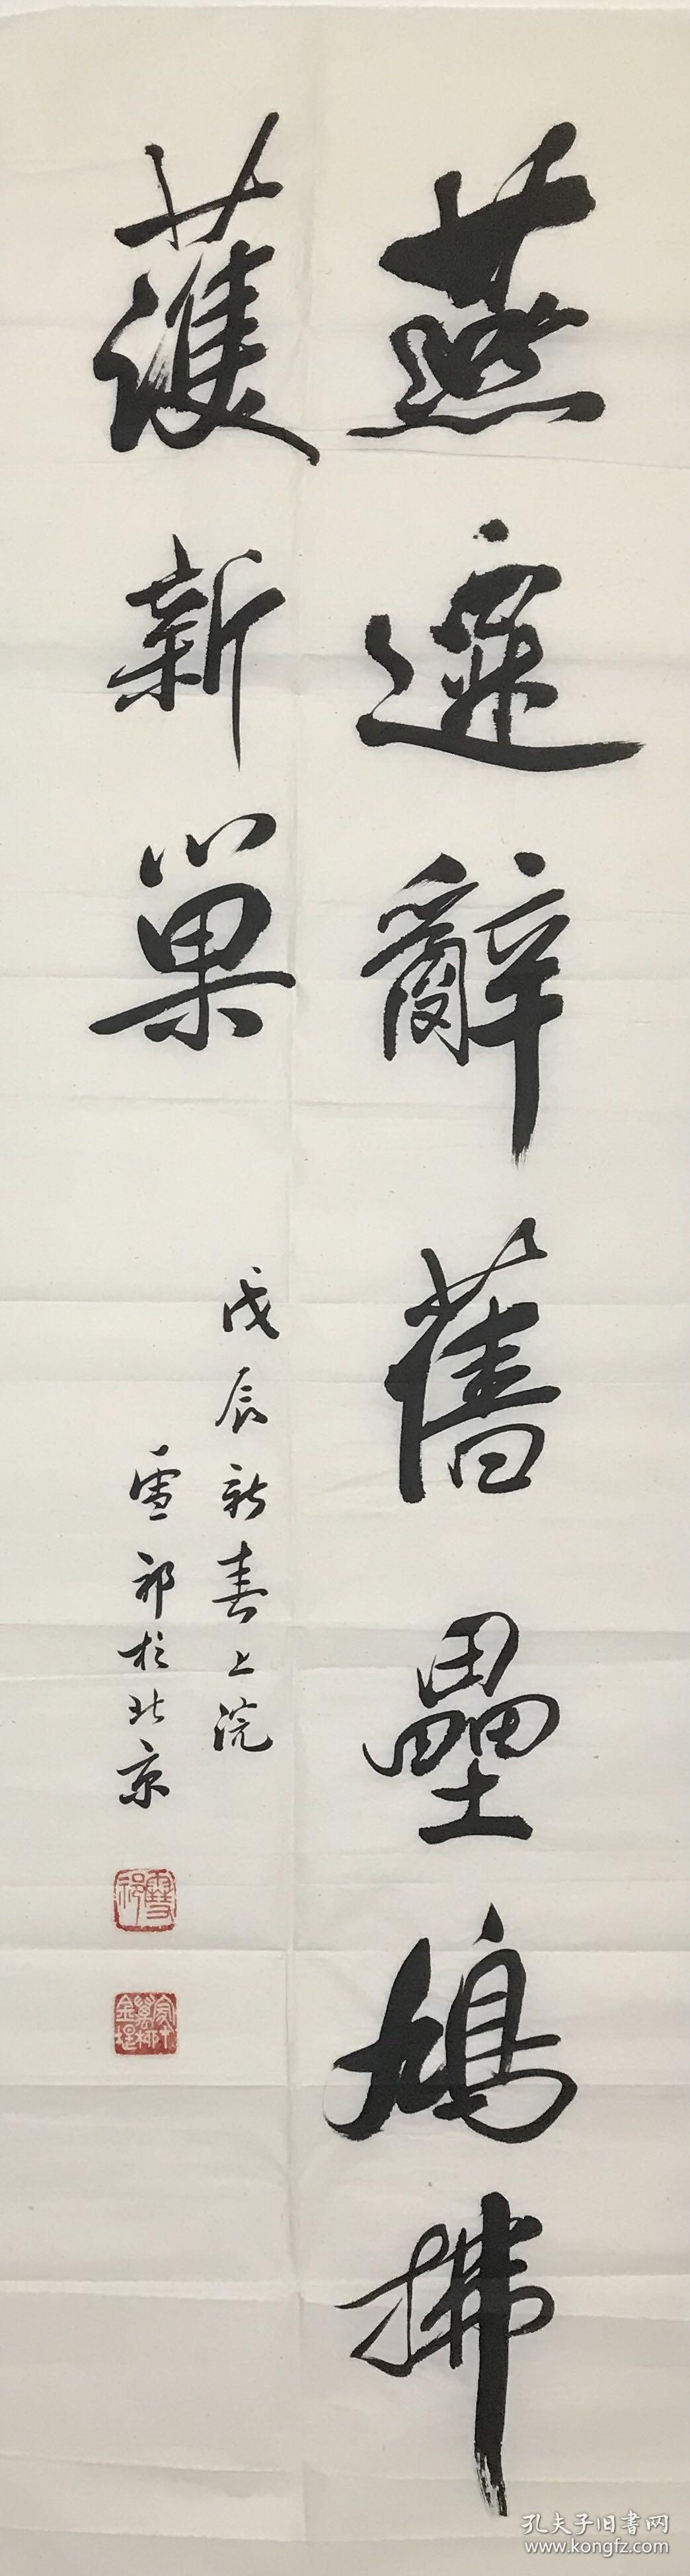 燕還辭舊壘鳩拂
護新巢
戊辰新春上浣
雪祁於北京
雪祁
孔夫子旧书网
www.kongfz.com